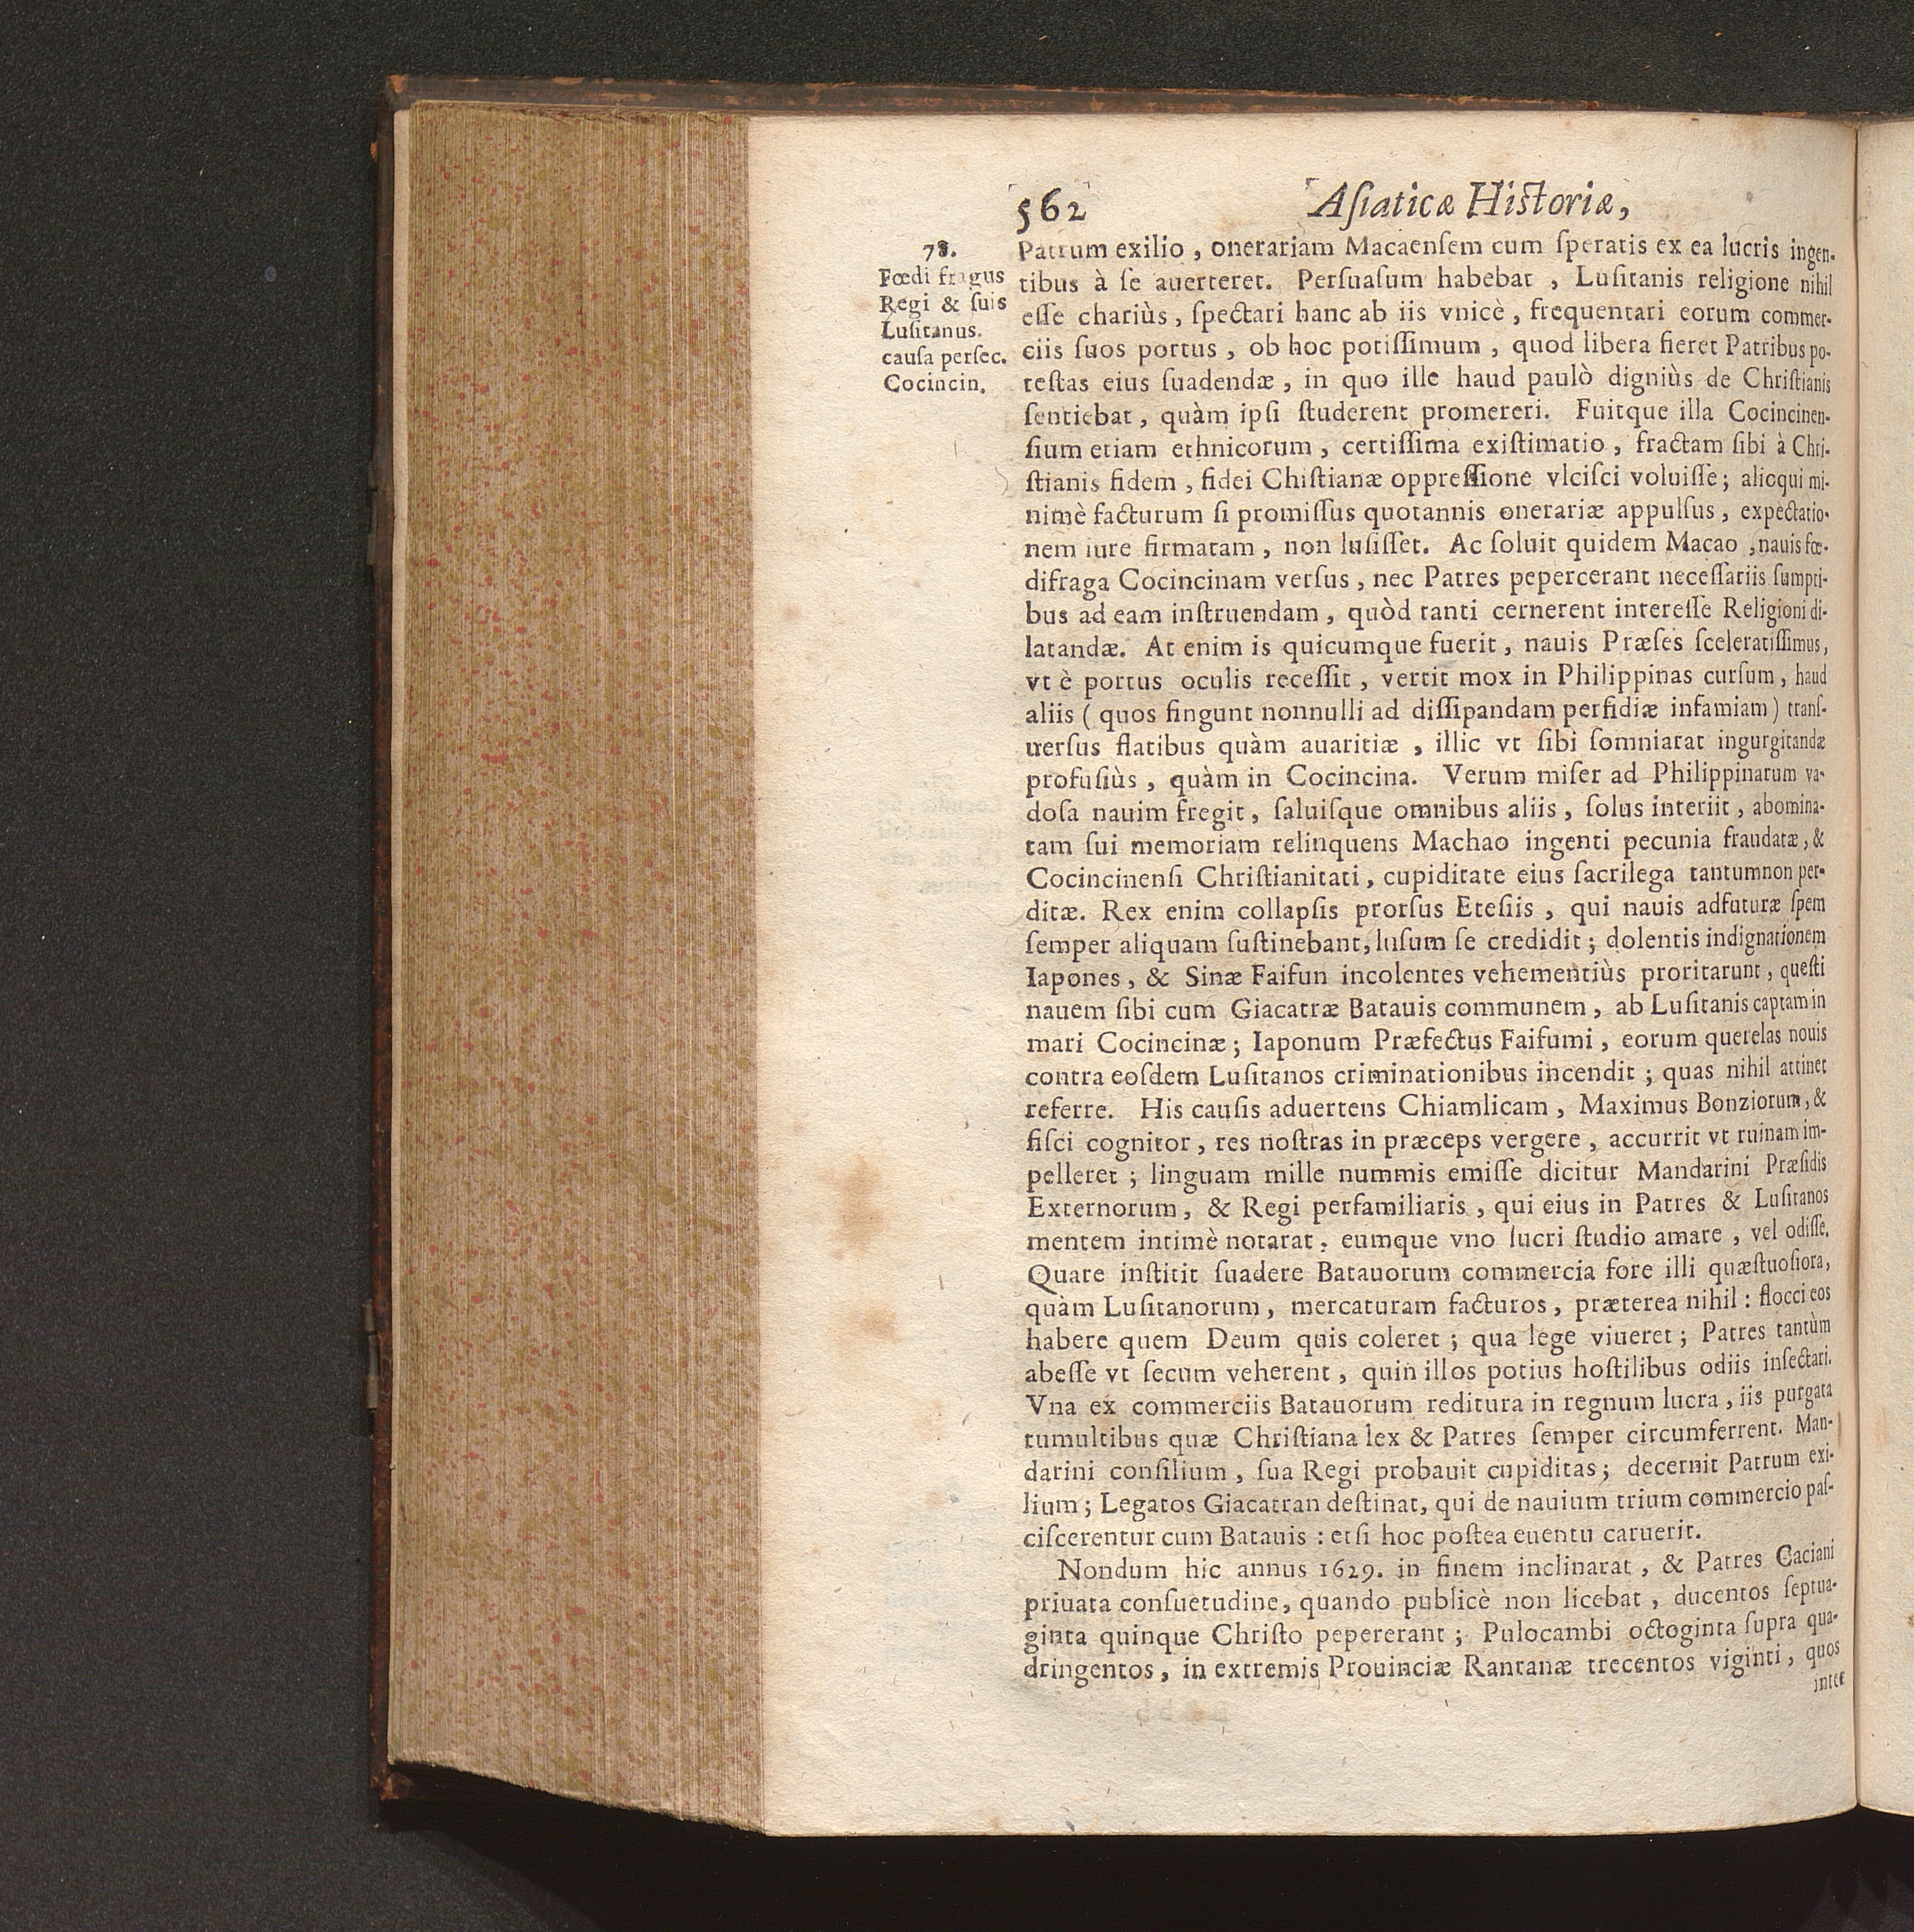 562
Asiaticæ Historiæ,
78.
Fœdi fragus
Regi & ſuis
Luſitanus.
cauſa perſec.
Cocincin.
Patrum exilio, onerariam Macaenſem cum ſperatis ex ea lucris ingen-
tibus à ſe auerteret. Perſuaſum habebat, Luſitanis religione nihil
eſſe chariùs, ſpectari hanc ab iis vnicè, frequentari eorum commer-
ciis ſuos portus, ob hoc potiſſimum, quod libera fieret Patribus po-
teſtas eius ſuadendæ, in quo ille haud paulò digniùs de Chriſtianis
ſentiebat, quàm ipſi ſtuderent promereri. Fuitque illa Cocincinen-
ſium etiam ethnicorum, certiſſima exiſtimatio, fractam ſibi à Chri-
ſtianis fidem, fidei Chiſtianæ oppreſſione vlciſci voluiſſe; alioqui mi-
nimè facturum ſi promiſſus quotannis onerariæ appulſus, expectatio-
nem iure firmatam, non luſiſſet. Ac ſoluit quidem Macao, nauis fœ-
difraga Cocincinam verſus, nec Patres pepercerant neceſſariis ſumpti-
bus ad eam inſtruendam, quòd tanti cernerent intereſſe Religioni di-
latandæ. At enim is quicumque fuerit, nauis Præſes ſceleratiſſimus,
vt è portus oculis receſſit, vertit mox in Philippinas curſum, haud
aliis (quos fingunt nonnulli ad diſſipandam perfidiæ infamiam) tranſ-
uerſus flatibus quàm auaritiæ, illic vt ſibi ſomniarat ingurgitandæ
profuſiùs, quàm in Cocincina. Verum miſer ad Philippinarum va-
doſa nauim fregit, ſaluiſque omnibus aliis, ſolus interiit, abomina-
tam ſui memoriam relinquens Machao ingenti pecunia fraudatæ, &
Cocincinenſi Chriſtianitati, cupiditate eius ſacrilega tantumnon per-
ditæ. Rex enim collapſis prorſus Eteſiis, qui nauis adfuturæ ſpem
ſemper aliquam ſuſtinebant, luſum ſe credidit; dolentis indignationem
Iapones, & Sinæ Faifun incolentes vehementiùs proritarunt, queſti
nauem ſibi cum Giacatræ Batauis communem, ab Luſitanis captam in
mari Cocincinæ; Iaponum Præfectus Faifumi, eorum querelas nouis
contra eoſdem Luſitanos criminationibus incendit; quas nihil attinet
referre. His cauſis aduertens Chiamlicam, Maximus Bonziorum, &
fiſci cognitor, res noſtras in præceps vergere, accurrit vt ruinam im-
pelleret; linguam mille nummis emiſſe dicitur Mandarini Præſidis
Externorum, & Regi perfamiliaris, qui eius in Patres & Luſitanos
mentem intimè notarat: eumque vno lucri ſtudio amare, vel odiſſe.
Quare inſtitit ſuadere Batauorum commercia fore illi quæſtuoſiora,
quàm Luſitanorum, mercaturam facturos, præterea nihil: flocci eos
habere quem Deum quis coleret; qua lege viueret; Patres tantùm
abeſſe vt ſecum veherent, quin illos potius hoſtilibus odiis inſectari.
Vna ex commerciis Batauorum reditura in regnum lucra, iis purgata
tumultibus quæ Chriſtiana lex & Patres ſemper circumferrent. Man-
darini conſilium, ſua Regi probauit cupiditas; decernit Patrum exi-
lium; Legatos Giacatran deſtinat, qui de nauium trium commercio paſ-
ciſcerentur cum Batauis: etſi hoc poſtea euentu caruerit.
Nondum hic annus 1629. in finem inclinarat, & Patres Caciani
priuata conſuetudine, quando publicè non licebat, ducentos ſeptua-
ginta quinque Chriſto pepererant; Pulocambi octoginta ſupra qua-
dringentos, in extremis Prouinciæ Rantanæ trecentos viginti, quos
inter